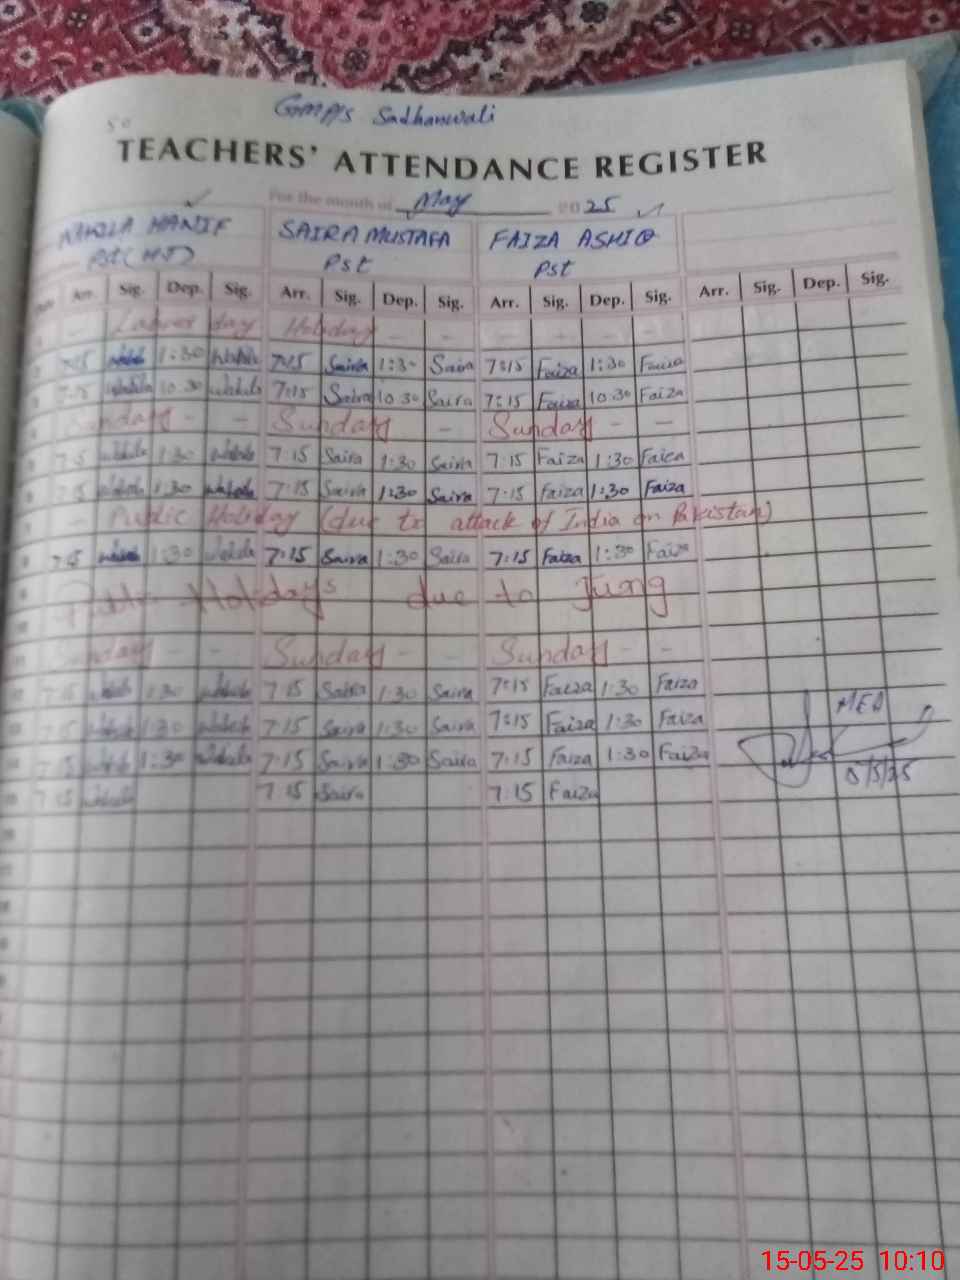 50
GMPS Sadhanwali
TEACHERS' ATTENDANCE REGISTER
For the month of May 2025
HANIF SAIRA MUSTAFA FAIZA ASHIQ
Pst Pst
Arr. Sig. Dep. Sig. Arr. Sig. Dep. Sig. Arr. Sig. Dep. Sig. Arr. Sig. Dep. Sig.
1 - Labour day Holiday - - - - - -
2 7:15 1:30 7:15 Saira 1:30 Saira 7:15 Faiza 1:30 Faiza
3 7:15 10:30 7:15 Saira 10:30 Saira 7:15 Faiza 10:30 Faiza
4 Sunday - - Sunday - Sunday - -
5 7:15 1:30 7:15 Saira 1:30 Saira 7:15 Faiza 1:30 Faiza
6 7:15 1:30 7:15 Saira 1:30 Saira 7:15 Faiza 1:30 Faiza
7 - Public Holiday (due to attack of India on Pakistan)
8 7:15 1:30 7:15 Saira 1:30 Saira 7:15 Faiza 1:30 Faiza
9 Public Holidays due to Jung
10
11 Sunday - - Sunday - - Sunday - -
12 7:15 1:30 7:15 Saira 1:30 Saira 7:15 Faiza 1:30 Faiza
13 7:15 1:30 7:15 Saira 1:30 Saira 7:15 Faiza 1:30 Faiza
MEA
14 7:15 1:30 7:15 Saira 1:30 Saira 7:15 Faiza 1:30 Faiza
15 7:15 7:15 Saira 7:15 Faiza
15-05-25 10:10